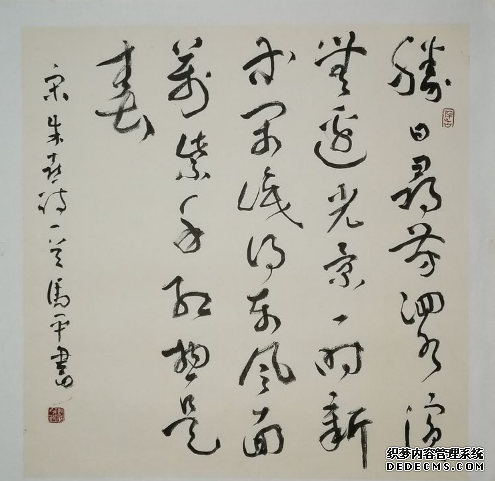 勝日尋芳泗水濱
無邊光景一時新
等閑識得東風面
萬紫千紅總是
春
宋朱熹詩一首馬平書
织梦内容管理系统
DEDECMS.COM